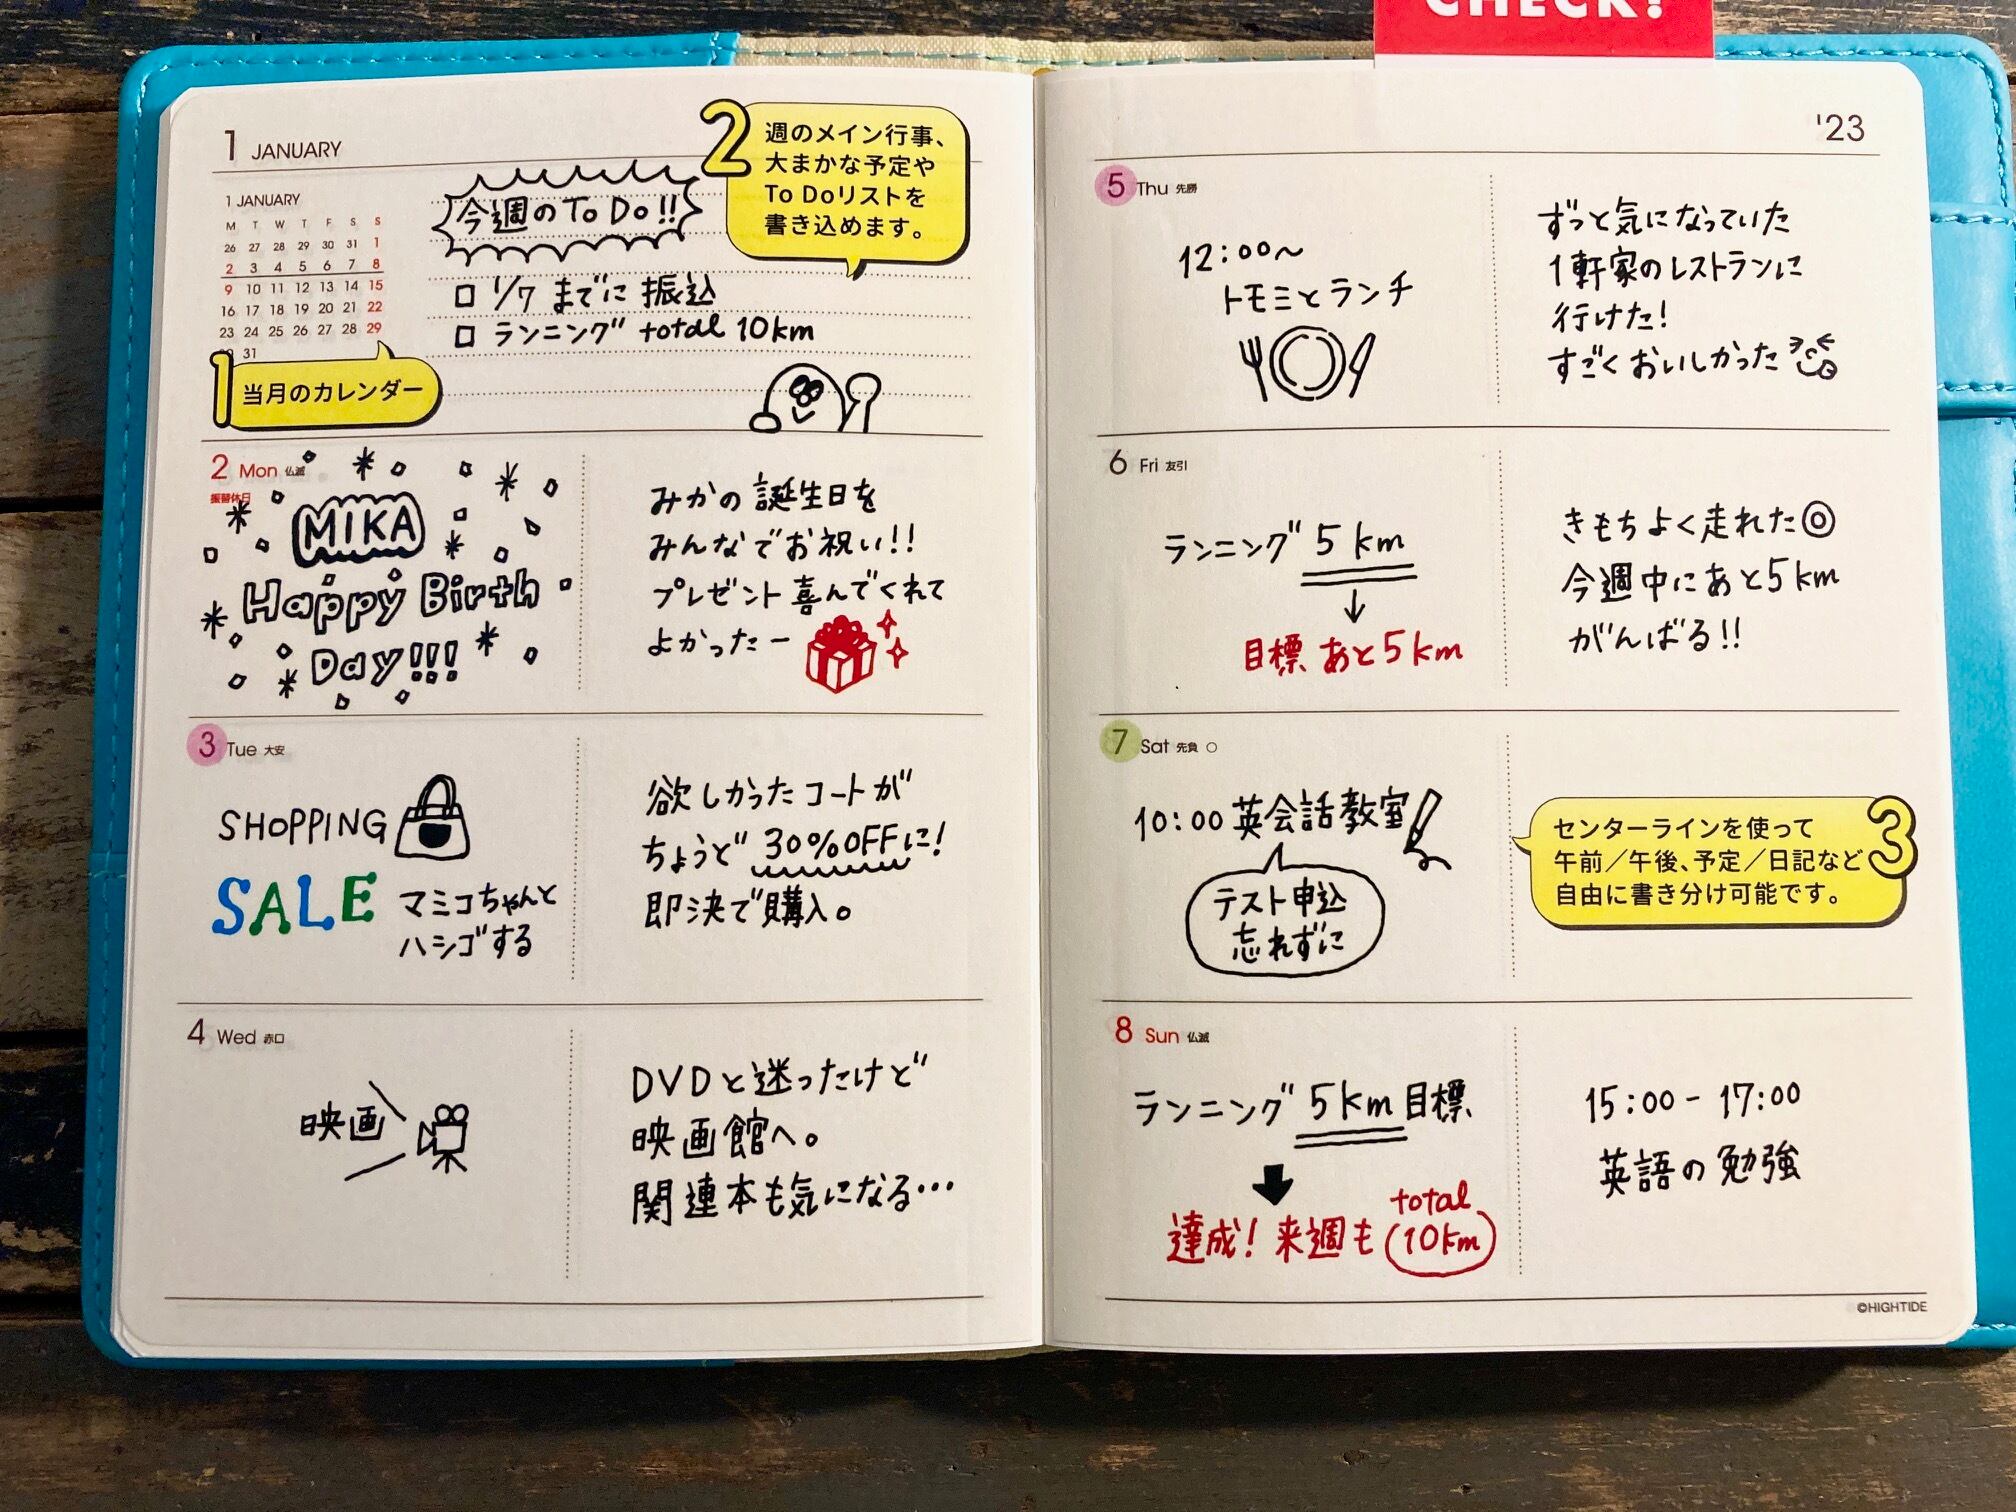 CHECK!
1 JANUARY
1 JANUARY
M T W T F S S
26 27 28 29 30 31 1
2 3 4 5 6 7 8
9 10 11 12 13 14 15
16 17 18 19 20 21 22
23 24 25 26 27 28 29
31
1 当月のカレンダー
今週のTo Do!!
□ 1/7 までに 振込
□ ランニング total 10km
2 週のメイン行事、
大まかな予定や
To Doリストを
書き込めます。
2 Mon 仏滅
振替休日
MIKA
Happy Birth
Day!!!
みかの誕生日を
みんなでお祝い!!
プレゼント喜んでくれて
よかったー
3 Tue 大安
SHOPPING
SALE マミコちゃんと
ハシゴする
欲しかったコートが
ちょうど 30%OFFに!
即決で購入。
4 Wed 赤口
映画
DVDと迷ったけど
映画館へ。
関連本も気になる…
'23
5 Thu 先勝
12:00〜
トモミとランチ
ずっと気になっていた
1軒家のレストランに
行けた!
すごくおいしかった
6 Fri 友引
ランニング 5km
↓
目標 あと5km
きもちよく走れた◎
今週中にあと5km
がんばる!!
7 Sat 先負 ○
10:00 英会話教室
テスト申込
忘れずに
センターラインを使って
午前／午後、予定／日記など
自由に書き分け可能です。
3
8 Sun 仏滅
ランニング 5km目標
達成! 来週も total
10km
15:00 - 17:00
英語の勉強
©HIGHTIDE